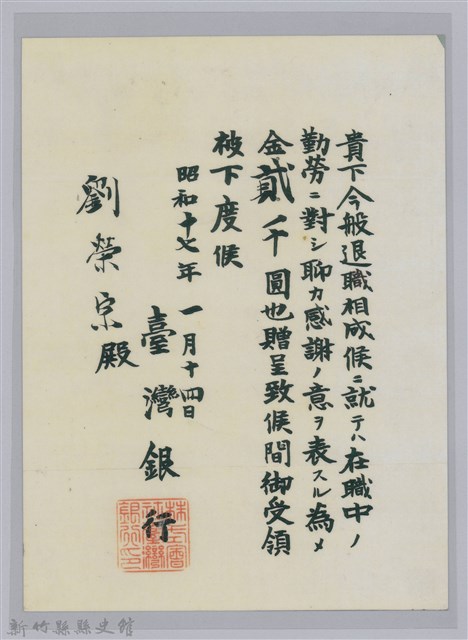 貴下今般退職相成候ニ就テハ在職中ノ
勤勞ニ對シ聊カ感謝ノ意ヲ表スル為メ
金貳千圓也贈呈致候間御受領
被下度候
昭和十七年一月十四日
臺灣銀行
劉榮宗殿
新竹縣縣史館